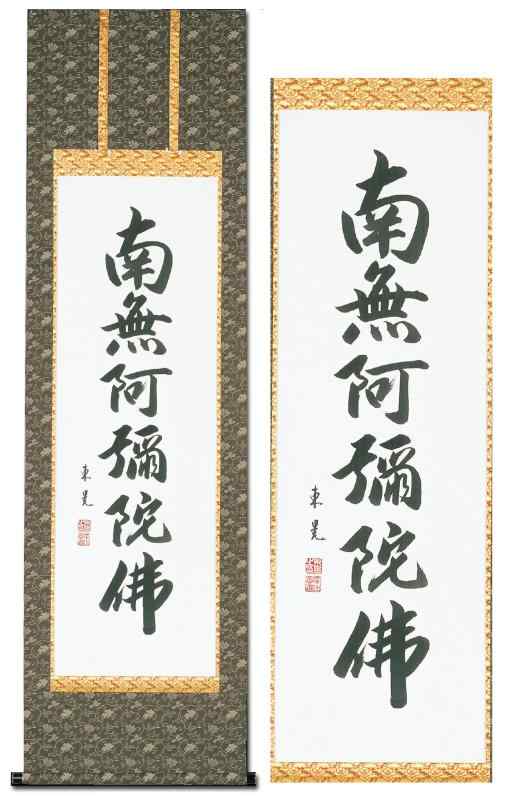 南無阿彌陀佛
東晃
南無阿彌陀佛
東晃